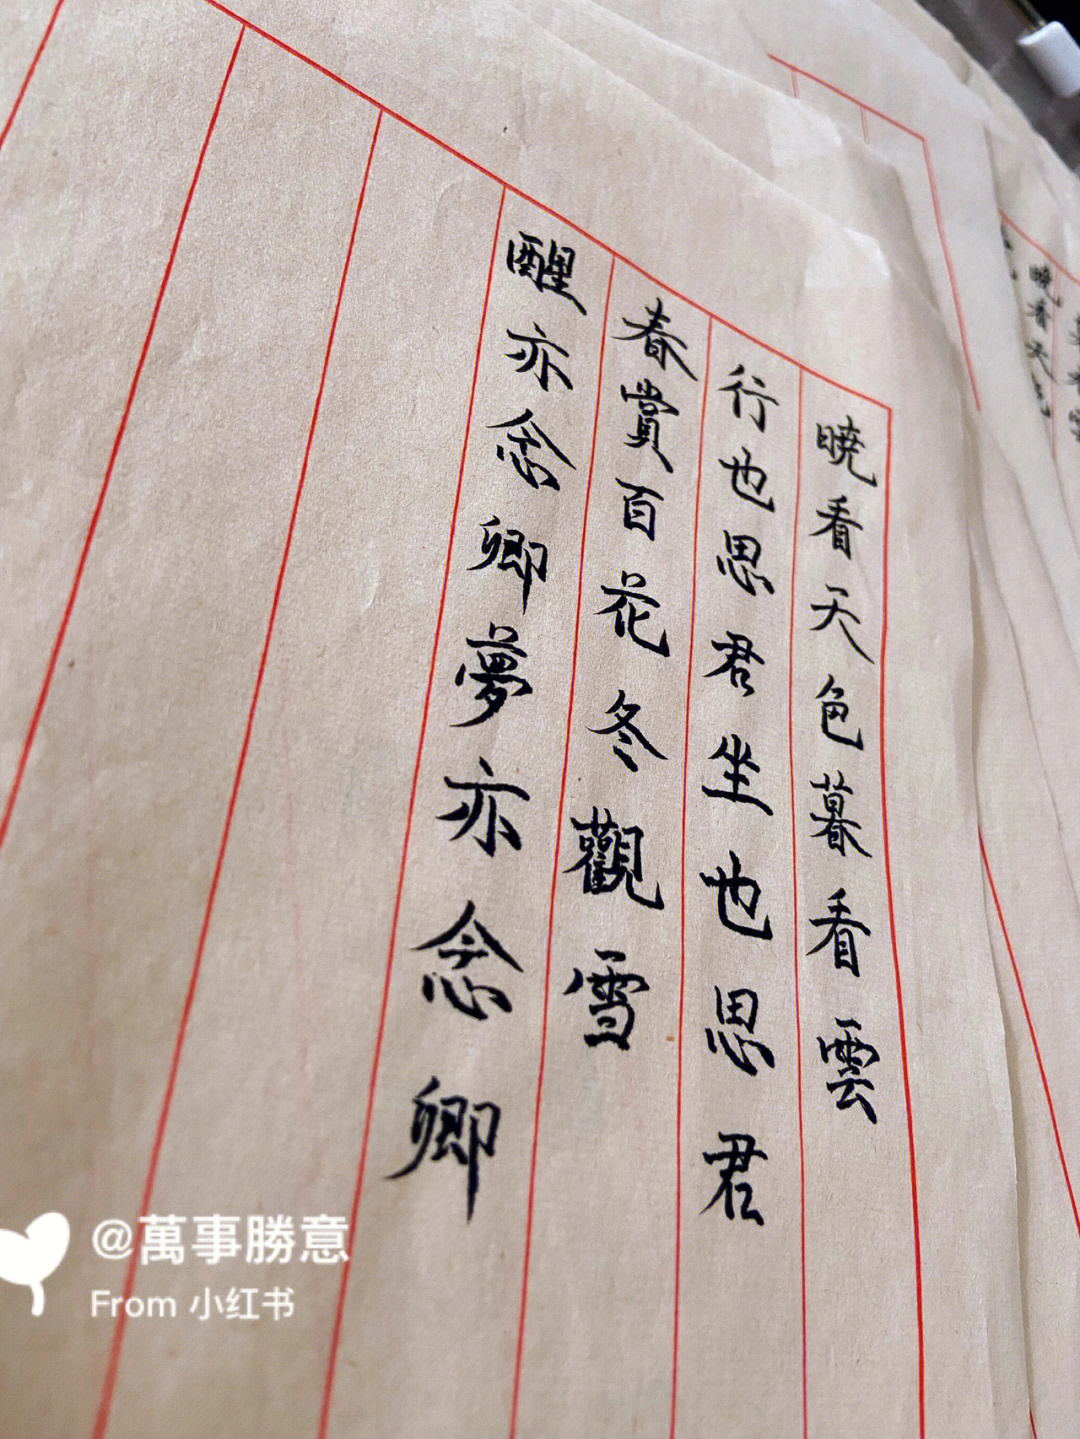 曉看天色暮看雲
行也思君坐也思君
春賞百花冬觀雪
醒亦念卿夢亦念卿
曉看天色
@萬事勝意
From 小红书